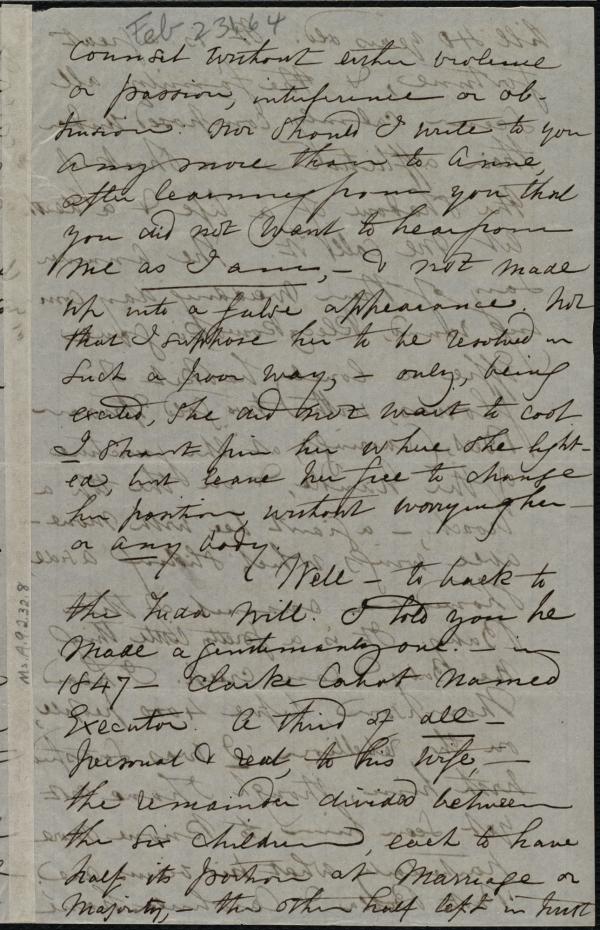 Feb 23 1864
Counsel without either violence
or passion, interference or ob-
trusion. Nor should I write to you
any more than to Anne,
after learning from you that
you did not want to hear from
me as I am, - & not made
up into a false appearance. Not
that I suppose her to be resolved in
such a poor way, - only, being
excited, she did not want to cool
I shant pin her where she light-
ed, but leave her free to change
her position, without worrying her -
or any body.
Well - to back to
the Will. I told you he
made a gentlemanly one. - in
1847 - Clarke Cabot named
Executor. A third of all -
personal & real, to his wife, -
the remainder divided between
the six children, each to have
half its portion at Marriage or
Majority, - the other half left in trust
Ms.A.9.2.32.8